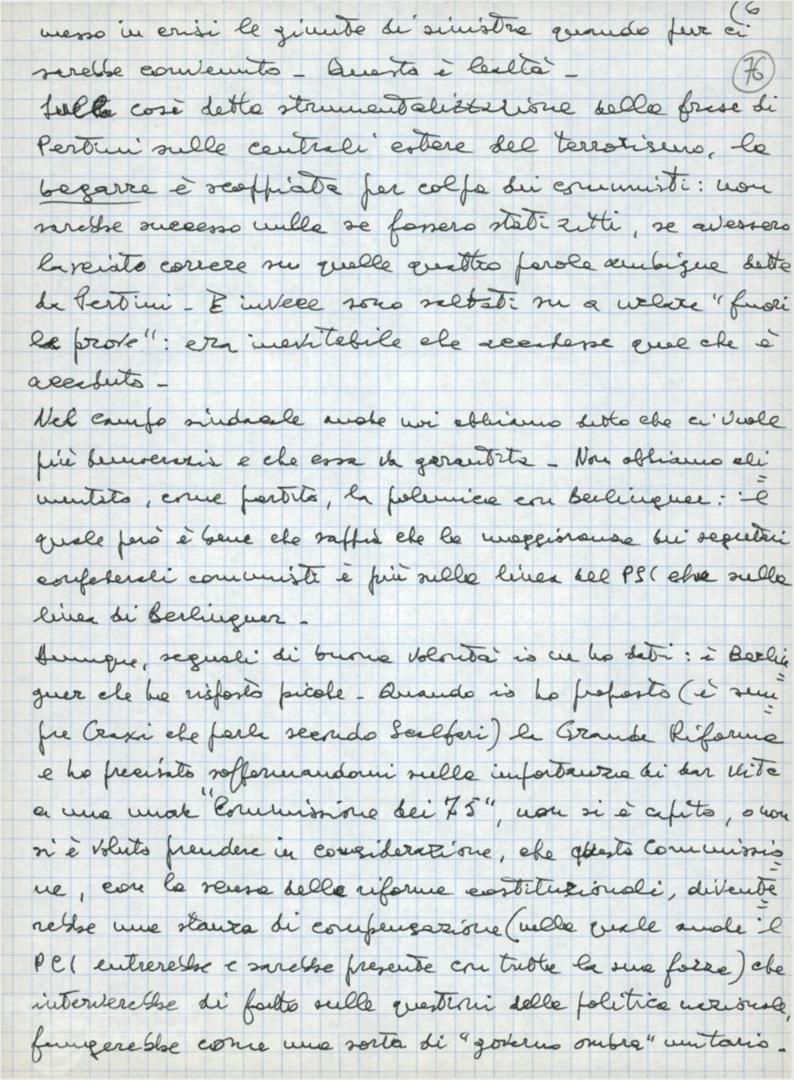 (6
messo in crisi le giunte di sinistra quando pur ci
76
sarebbe convenuto - Questa è lealtà -
Sulla cosi detta strumentalizzazione della frase di
Pertini sulle centrali estere del terrorismo, la
bagarre è scoppiata per colpa dei comunisti: non
sarebbe successo nulla se fossero stati zitti, se avessero
lasciato correre su quelle quattro parole ambigue dette
da Pertini - E invece sono saltati su a urlare "fuori
le prove": era inevitabile che accadesse quel che è
accaduto -
Nel campo sindacale anche noi abbiamo detto che ci vuole
più democrazia e che essa va garantita - Non abbiamo ali=
mentato, come partito, la polemica con Berlinguer: il
quale però è bene che sappia che la maggioranza dei segretari
confederali comunisti è più sulla linea del PSI che sulla
linea di Berlinguer -
Dunque, segnali di buona volontà io ne ho dati: è Berlin=
guer che ha risposto picche - Quando io ho proposto (è sem=
pre Craxi che parla secondo Scalfari) la Grande Riforma
e ho precisato soffermandomi sulla importanza di dar vita
a una "Commissione dei 75", non si è capito, o non
si è voluto prendere in considerazione, che questa Commissio=
ne, con la scusa delle riforme costituzionali, divente=
rebbe una stanza di compensazione (nella quale anche il
PCI entrerebbe e sarebbe presente con tutta la sua forza) che
interverrebbe di fatto sulle questioni della politica nazionale,
fungerebbe come una sorta di "governo ombra" unitario -